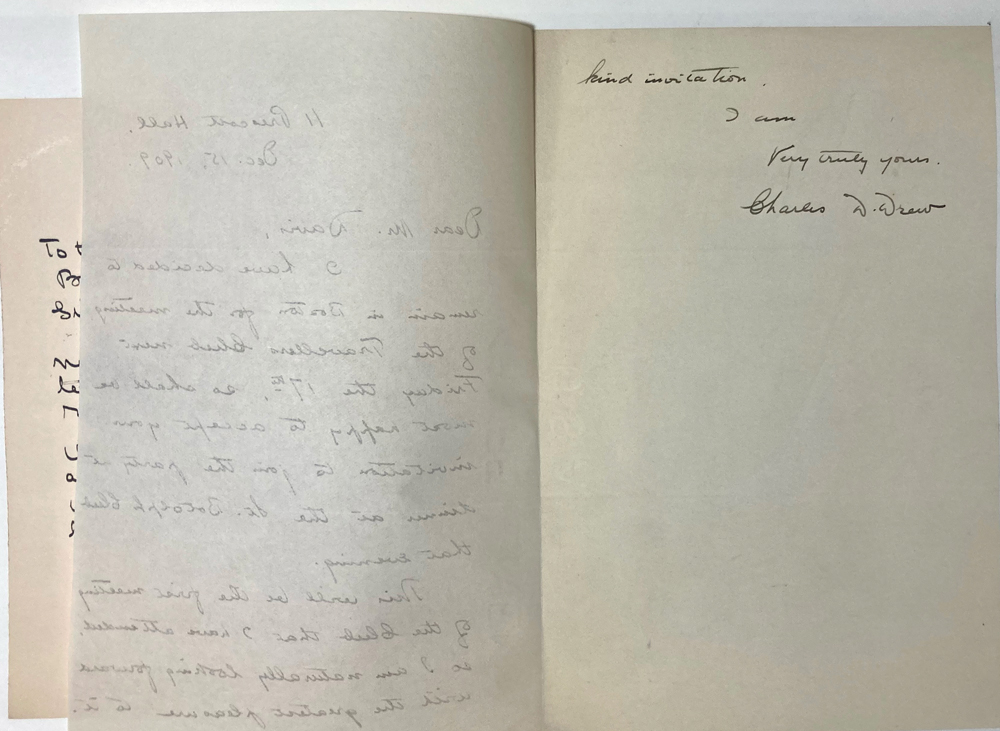 11 Prescott Hall.
Dec. 15, 1909.
Dear Mr. Davis,
I have decided to
remain in Boston for the meeting
of the Travellers Club next
Friday the 17th, so shall be
most happy to accept your
invitation to join the party at
dinner at the St. Botolph Club
that evening.
This will be the first meeting
of the Club that I have attended,
so I am naturally looking forward
with the greatest pleasure to it.
kind invitation.
I am
Very truly yours.
Charles D. Drew